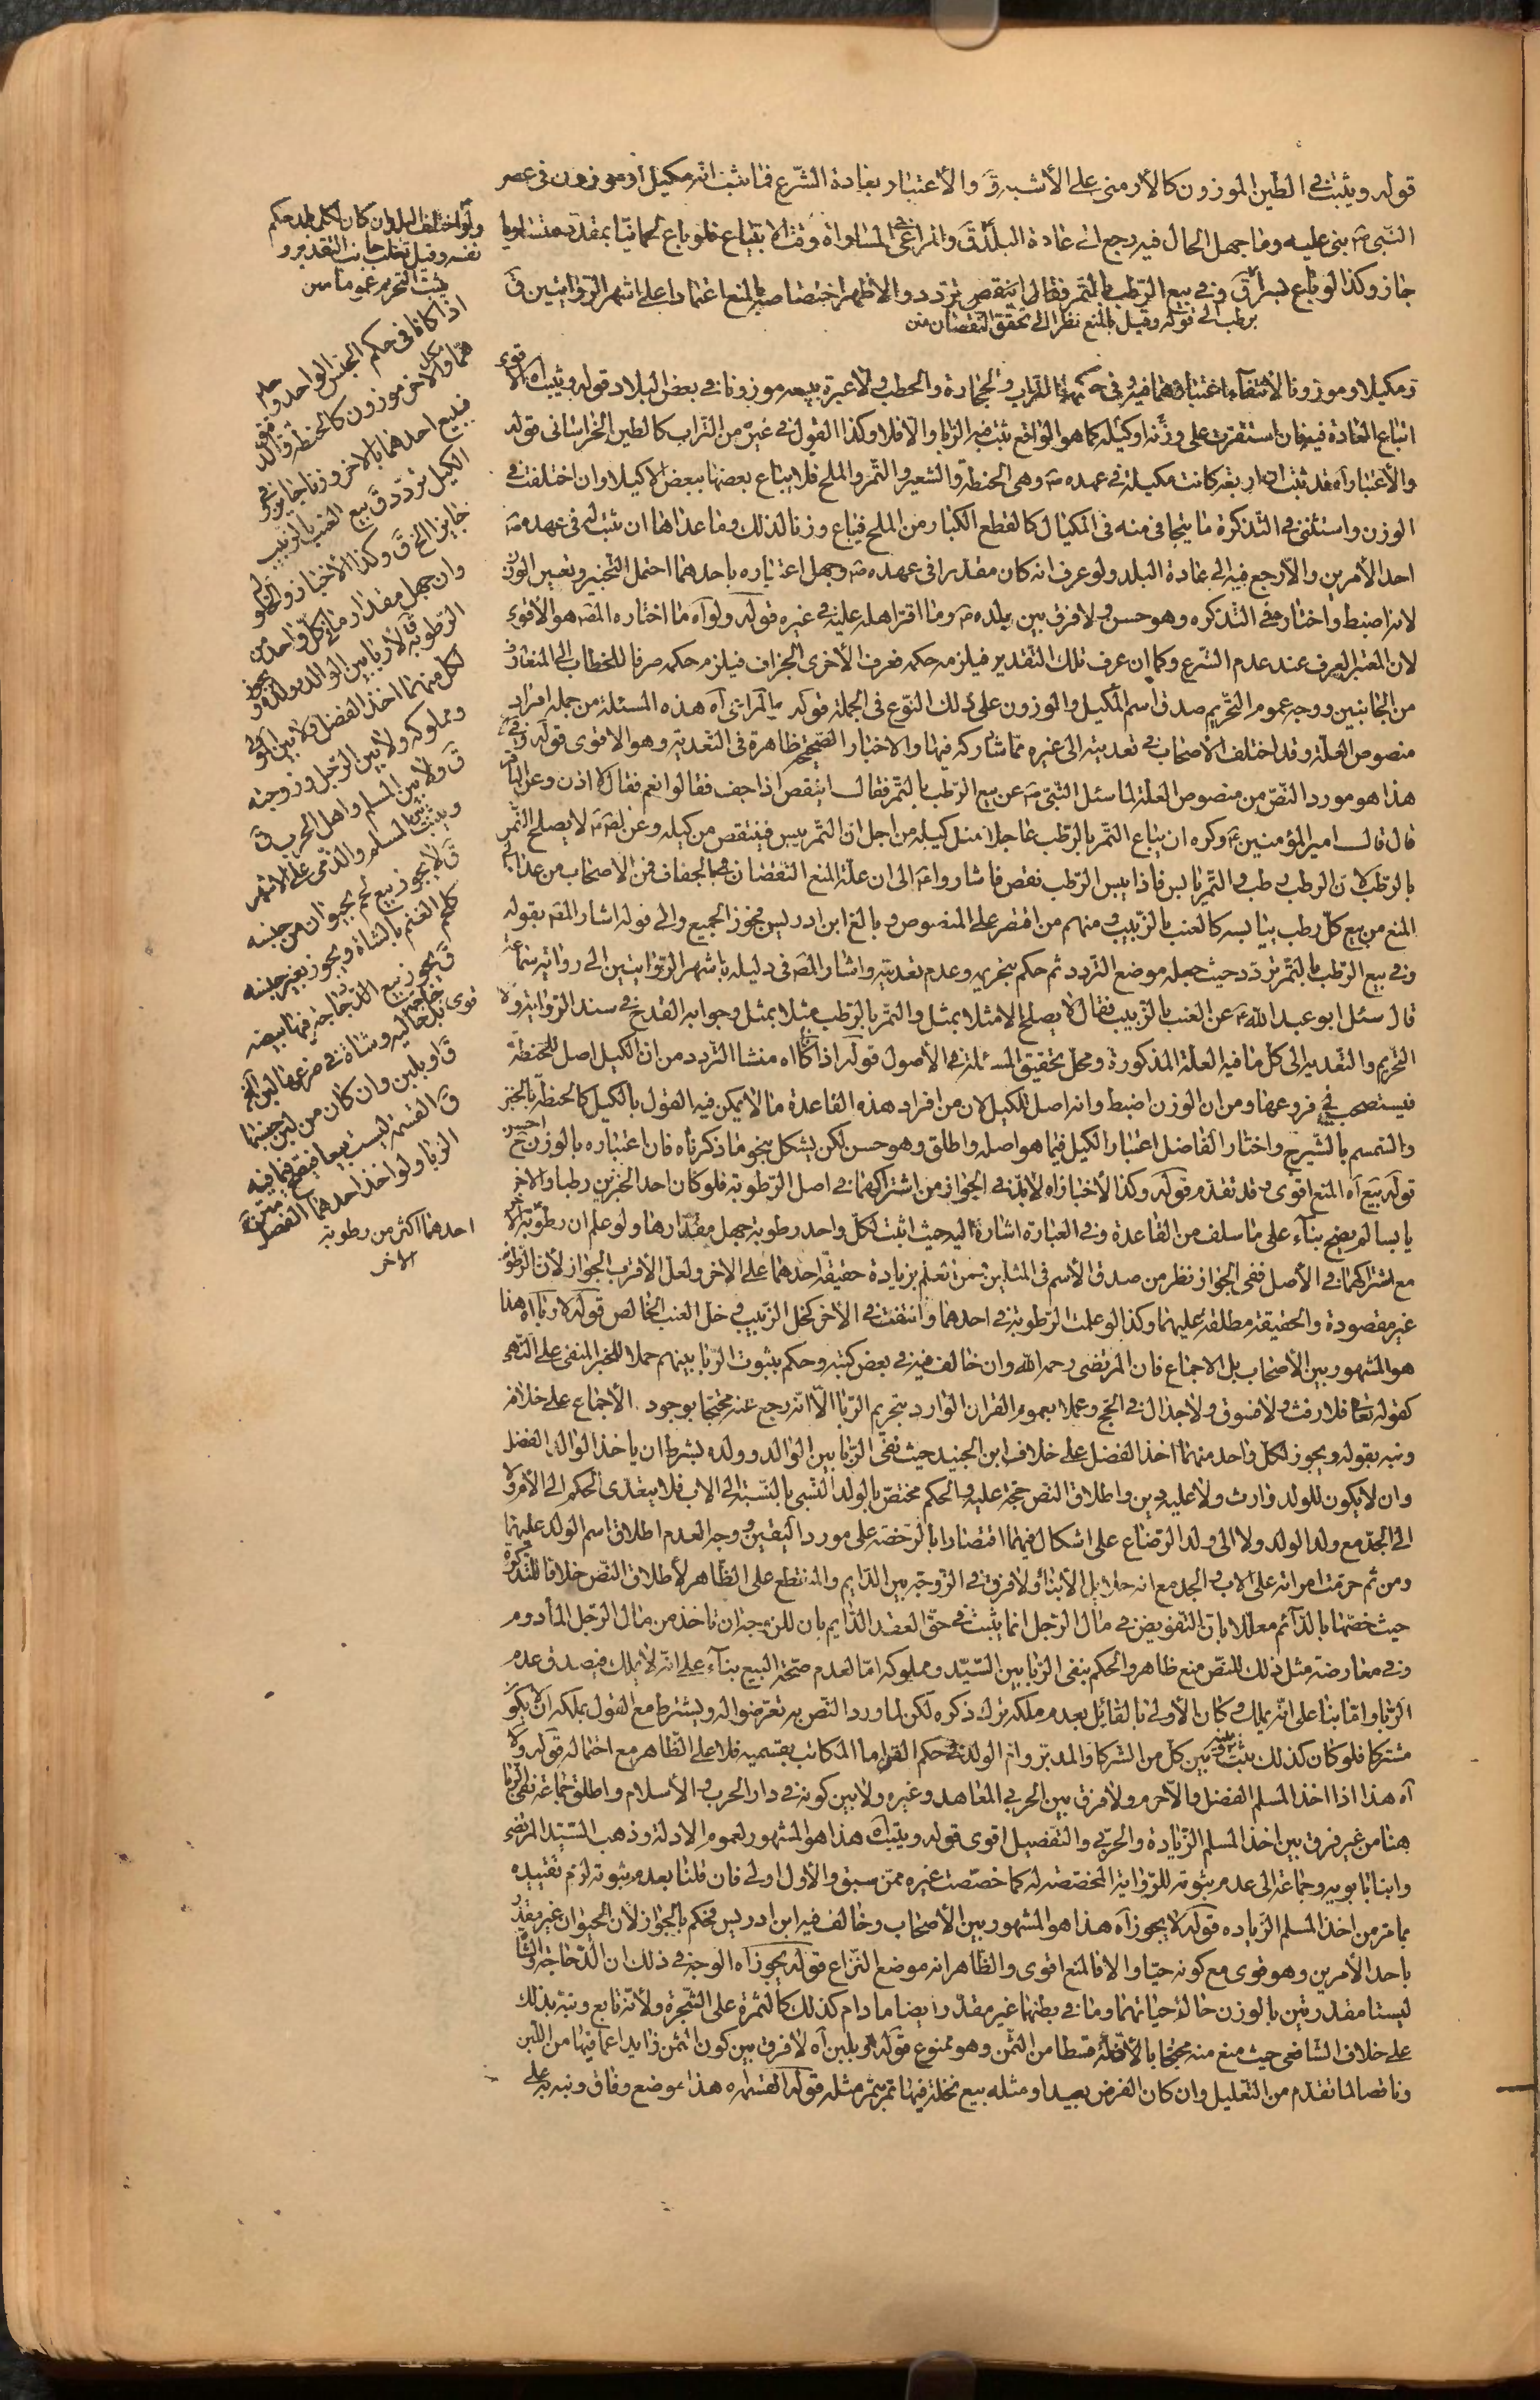 قوله ويثبت في الطين الموزون كالأرمني على الأشبه قَ والأعتبار بعادة الشرع فما يثبت انه مكيل او موزون في عصر
النبي ص بنى عليه وما جهل الحال فيه رجع الى عادة البلد قَ والمراعى في المساواة وقت الابتياع فلو باع لحما نيا بمقدد متساويا
جاز وكذا لو باع بسرا قَ وفي بيع الرطب بالتمر
برطب الى قوله وقيل بالمنع نظرا الى تحقق النقصان متن
ولو اختلف البلدان كان لكل بلد حكم
نفسه وقيل تغلب جانب التقدير و
يثبت التحريم عموما متن
اتباع العادة فيه فان استقرت على وزنه او كيله كما هو الواقع ثبت فيه الربا والا فلا وكذا القول في غيره من التراب كالطين الخراساني قوله
والأعتبار آه قد ثبت ان اربعة كانت مكيلة في عهده ص وهي الحنطة والشعير والتمر والملح فلا يباع بعضها ببعض الا كيلا وان اختلفت في
الوزن واستثنى في التذكرة ما يتجافى منه في المكيال كالقطع الكبار من الملح فيباع وزنا لذلك وما عداها ان ثبت له في عهده ص
احد الأمرين والا رجع فيه الى عادة البلد ولو عرف انه كان مقدرا في عهده ص وجهل اعتباره باحدهما احتمل التخيير وتعين الوزن
لانه اضبط واختاره في التذكره وهو حسن ولا فرق بين بلده ص وما اقر اهله عليه في غيره قوله ولو آه ما اختاره المص هو الأقوى
لان المعتبر العرف عند عدم الشرع وكما ان عرف تلك التقدير فيلزمه حكمه فعرف الأخرى الجزاف فيلزمه حكمه صرفا للخطاب الى المتعارف
من الجانبين ووجه عموم التحريم صدق اسم المكيل والموزون على ذلك النوع في الجملة قوله
منصوص العلة وقد اختلف الأصحاب في تعديته الى غيره مما شاركه فيها والاختبار الصحيح ظاهرة في التعدية وهو الاقوى قوله وفي
هذا هو مورد النص من منصوص العلة لما سئل النبي ص عن بيع الرطب بالتمر فقال اينقص اذا جف فقالوا نعم فقال لا اذن وعن الباقر
قال قال امير المؤمنين ع وكره ان يباع التمر بالرطب عاجلا مثل كيله من اجل ان التمر ييبس فينتقص من كيله وعن الص ع لا يصلح التمر
بالرطب لان الرطب رطب والتمر يابس فاذا يبس الرطب نقص فاشاروا ع الى ان علة المنع النقصان بالجفاف فمن الاصحاب من عدا
المنع من بيع كل رطب بيابسه كالعنب بالزبيب ومنهم من اقتصر على المنصوص وبالغ ابن ادريس فجوز الجميع والى قوله اشار المص بقوله
وفي بيع الرطب بالتمر تردد حيث جعله موضع التردد ثم حكم بتحريمه وعدم تعديته واشار المص في دليله باشهر الروايتين الى رواية سماعة
قال سئل ابو عبد الله ع عن العنب بالزبيب فقال لا يصلح الا مثلا بمثل والتمر بالرطب مثلا بمثل وجوابه القدح في سند الرواية
التحريم والتعديه الى كل ما فيه العلة المذكورة ومحل تحقيق المسئلة في الأصول قوله اذا كانا آه منشا التردد من ان الكيل اصل للحنطة
فيستصحب في فروعها ومن ان الوزن اضبط وانه اصل للكيل لان من افراد هذه القاعدة ما لا يمكن فيه القول بالكيل كالحنطة بالخبز
والسمسم بالشيرج واختار الفاضل اعتبار الكيل فيما هو اصله واطلق وهو حسن لكن يشكل بنحو ما ذكرناه فان اعتباره بالوزن ح احسن
قوله بيع آه المنع اقوى وقد تقدم قوله وكذا الأخباز آه لابد في الجواز من اشتراكهما في اصل الرطوبة فلو كان احد الخبزين رطبا والاخر
يابسا لم يصح بناء على ما سلف من القاعدة وفي العبارة اشارة اليه حيث اثبت لكل واحد رطوبة جهل مقدارها ولو علم ان رطوبة الاخر
مع اشتراكهما في الأصل ففي الجواز نظر من صدق الأسم في المثلين ومن تعلم بزيادة حقيقة احدهما على الاخر ولعل الأقرب الجواز لأن الرطوبة
غير مقصودة والحقيقة مطلقة عليهما وكذا لو علمت الرطوبة في احدهما وانتفت في الأخر كخل الزبيب وخل العنب الخالص قوله لا ربا آه هذا
هو المشهور بين الأصحاب بل الاجماع فان المرتضى رحمه الله وان خالف فيه في بعض كتبه وحكم بثبوت الربا بينهم حملا للخبر المنفى على النهى
كقوله تعالى فلا رفث ولا فسوق ولا جدال في الحج وعملا بعموم القران الوارد بتحريم الربا الا انه رجع عنه محتجا بوجود الأجماع على خلافه
ونبه بقوله ويجوز لكل واحد منهما اخذ الفضل على خلاف ابن الجنيد حيث نفى الربا بين الوالد وولده بشرط ان ياخذ الوالد الفضل
وان لا يكون للولد وارث ولا عليه دين واطلاق النص حجة عليه والحكم مختص بالولد النسبي بالنسبة الى الاب فلا يتعدى الحكم الى الأم ولا
الى الجد مع ولد الولد ولا الى ولد الرضاع على اشكال فيهما اقتصارا بالرخصة على مورد اليقين ووجه العدم اطلاق اسم الولد عليهما
ومن ثم حرمت امراته على الاب والجد مع انه حلائل الأبناء ولا فرق في الزوجة بين الدايم والمنقطع على الظاهر لأطلاق النص خلافا للتذكرة
حيث خصها بالدائم معللا بان التفويض في مال الرجل انما يثبت في حق العقد الدايم بان للزوجة ان تاخذ من مال الرجل المأدوم
وفي معارضة مثل ذلك للنص منع ظاهر والحكم بنفى الربا بين السيد ومملوكه اما لعدم صحة البيع بناء على انه لا يملك فيصدق عدم
الربا واما بناء على انه يملك وكان الأولى بالقائل بعدم ملكه ترك ذكره لكن لما ورد النص به تعرضوا له ويشترط مع القول بملكه ان لا يكون
مشتركا فلو كان كذلك ثبت بينه وبين كل من الشركا والمدبر وام الولد في حكم القن اما المكاتب بقسميه فلا على الظاهر مع احتماله قوله ولا
آه هذا اذا اخذ المسلم الفضل والا حرم ولا فرق بين الحربي المعاهد وغيره ولا بين كونه في دار الحرب والأسلام واطلق جماعة نفى الربا
هنا من غير فرق بين اخذ المسلم الزيادة والحربي والتفصيل اقوى قوله ويثبت آه هذا هو المشهور لعموم الادلة وذهب السيد المرتضى
وابنا بابويه وجماعة الى عدم ثبوته للرواية المخصصة له كما خصصت غيره ممن سبق والأول اولى فان قلنا بعدم ثبوته لزم تقييده
بما مر من اخذ المسلم الزياده قوله لا يجوز آه هذا هو المشهور بين الأصحاب وخالف فيه ابن ادريس فحكم بالجواز لأن الحيوان غير مقدر
باحد الأمرين وهو قوى مع كونه حيا والا فالمنع اقوى والظاهر انه موضع النزاع قوله يجوز آه الوجه في ذلك ان الدجاجة والشاة
ليستا مقدرتين بالوزن حالة حياتهما وما في بطنها غير مقدر ايضا ما دام كذلك كالثمرة على الشجرة ولأنه تابع ونبه بذلك
على خلاف الشافعي حيث منع منه محتجا بالأن له قسطا من الثمن وهو ممنوع قوله او بلبن آه لا فرق بين كون الثمن زايدا عما فيها من اللبن
وناقصا لما تقدم من التعليل وان كان الفرض بعيدا ومثله بيع نخلة فيها تمر بتمر مثله قوله القسمة آه هذا موضع وفاق ونبه به على
اذا كانا في حكم الجنس الواحد واحد
هما مكيل والاخر موزون كالحنطة والدقيق
فبيع احدهما بالاخر وزنا جايز وفي
الكيل تردد قَ بيع العنب بالزبيب
جايز الخ قَ وكذا الأخباز والخلول
وان جهل مقدار ما في كل واحد من
الرطوبة قَ لا ربا بين الوالد وولده و يجوز
لكل منهما اخذ الفضل ولا بين المولى
ومملوكه ولا بين الرجل وزوجته
قَ ولا بين المسلم واهل الحرب قَ
ويثبت بين المسلم والذمي على الاشهر
قَ لا يجوز بيع لحم بحيوان من جنسه
كلحم الغنم بالشاة ويجوز بغير جنسه
قَ يجوز بيع الدجاجة فيها بيضة
بدجاجة خالية وشاة في ضرعها لبن الخ
قَ او بلبن وان كان من لبن جنسها
قَ القسمة ليست بيعا فتصح فيما فيه
الربا ولو اخذ احدهما الفضل متن
احدهما اكثر من رطوبة
الاخر